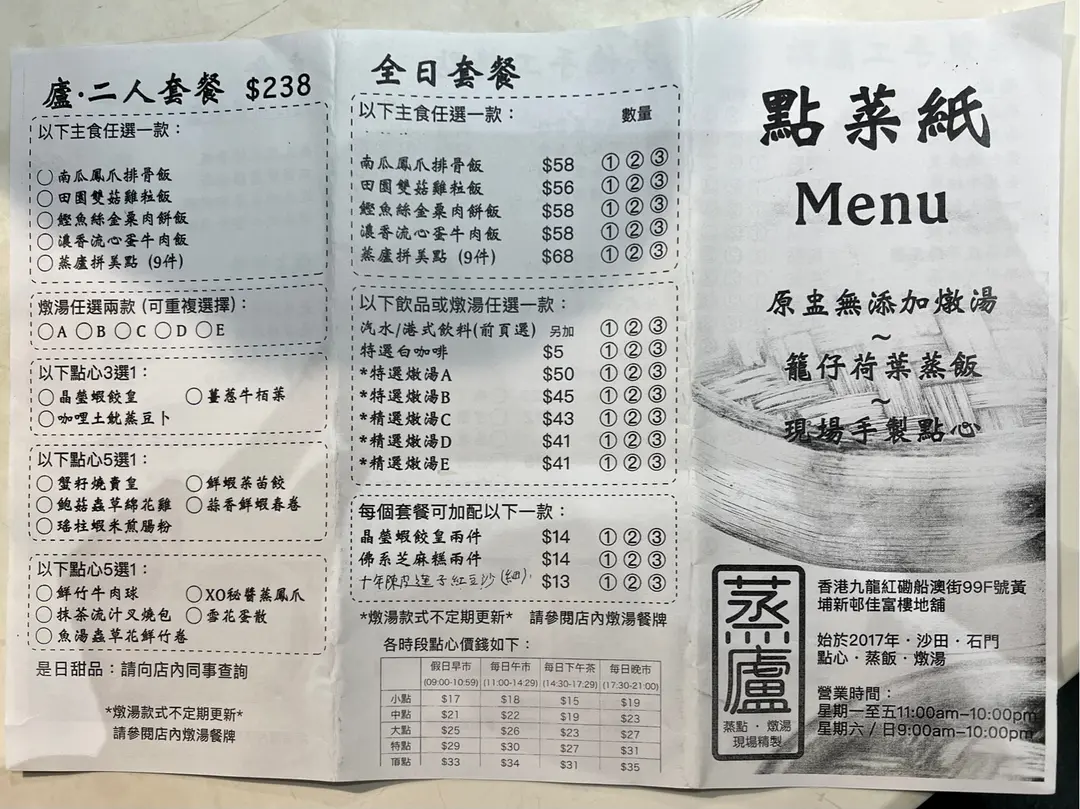 廬·二人套餐 $238
以下主食任選一款：
南瓜鳳爪排骨飯
田園雙菇雞粒飯
鰹魚絲金粟肉餅飯
濃香流心蛋牛肉飯
蒸廬拼美點 (9件)
燉湯任選兩款 (可重複選擇)：
A B C D E
以下點心3選1：
晶瑩蝦餃皇 薑蔥牛栢葉
咖哩土魷蒸豆卜
以下點心5選1：
蟹籽燒賣皇 鮮蝦菜苗餃
鮑菇蟲草綿花雞 蒜香鮮蝦春卷
瑤柱蝦米煎腸粉
以下點心5選1：
鮮竹牛肉球 XO秘醬蒸鳳爪
抹茶流汁叉燒包 雪花蛋散
魚湯蟲草花鮮竹卷
是日甜品：請向店內同事查詢
*燉湯款式不定期更新*
請參閱店內燉湯餐牌
全日套餐
以下主食任選一款： 數量
南瓜鳳爪排骨飯 $58 ① ② ③
田園雙菇雞粒飯 $56 ① ② ③
鰹魚絲金粟肉餅飯 $58 ① ② ③
濃香流心蛋牛肉飯 $58 ① ② ③
蒸廬拼美點 (9件) $68 ① ② ③
以下飲品或燉湯任選一款：
汽水/港式飲料(前頁選) 另加 ① ② ③
特選白咖啡 $5 ① ② ③
*特選燉湯A $50 ① ② ③
*特選燉湯B $45 ① ② ③
*精選燉湯C $43 ① ② ③
*精選燉湯D $41 ① ② ③
*精選燉湯E $41 ① ② ③
每個套餐可加配以下一款：
晶瑩蝦餃皇兩件 $14 ① ② ③
佛系芝麻糕兩件 $14 ① ② ③
十年陳皮蓮子紅豆沙(細) $13 ① ② ③
*燉湯款式不定期更新* 請參閱店內燉湯餐牌
各時段點心價錢如下：
假日早市 每日午市 每日下午茶 每日晚市
(09:00-10:59) (11:00-14:29) (14:30-17:29) (17:30-21:00)
小點 $17 $18 $15 $19
中點 $21 $22 $19 $23
大點 $25 $26 $23 $27
特點 $29 $30 $27 $31
頂點 $33 $34 $31 $35
點菜紙
Menu
原盅無添加燉湯
~
籠仔荷葉蒸飯
~
現場手製點心
蒸廬
蒸點·燉湯
現場精製
香港九龍紅磡船澳街99F號黃
埔新邨佳富樓地舖
始於2017年·沙田·石門
點心·蒸飯·燉湯
營業時間：
星期一至五11:00am–10:00pm
星期六 / 日9:00am–10:00pm